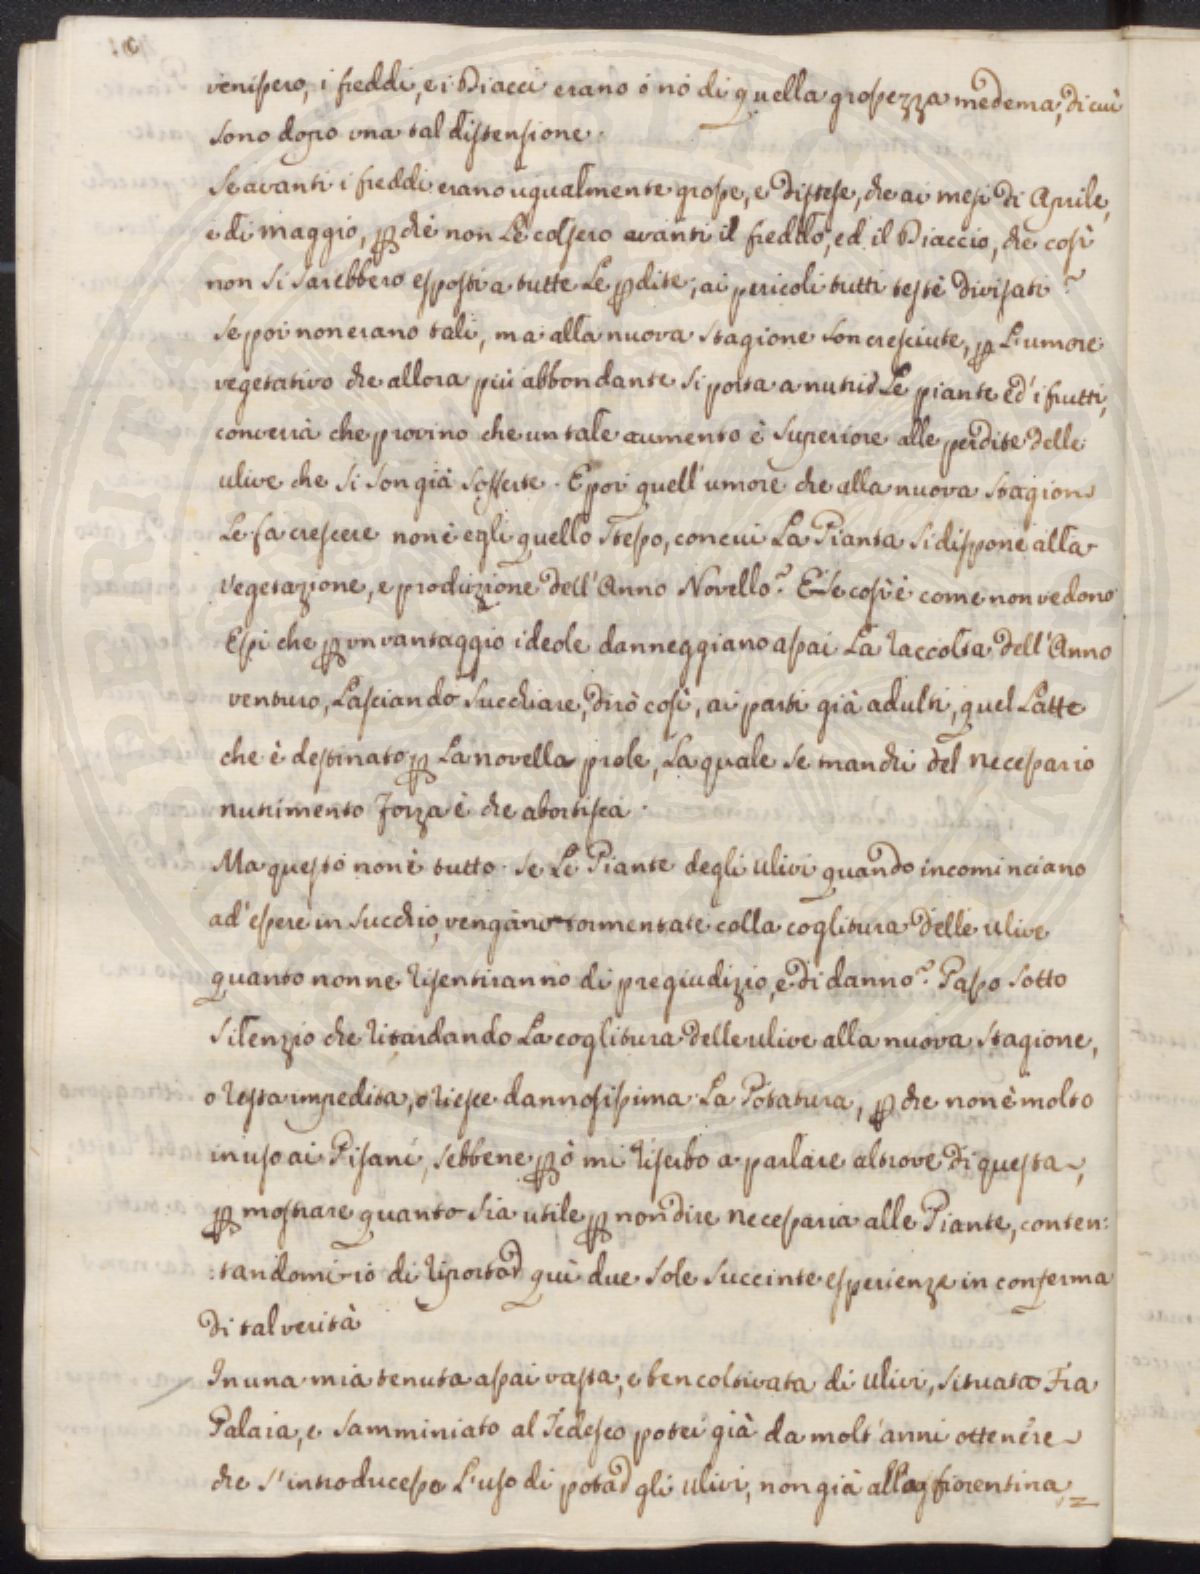 venissero, i freddi, e i Diacci erano ó nó di quella grossezza medema, di cui
sono dopo una tal distensione.
Se avanti i freddi erano ugualmente grosse, e distese, che ai mesi di Aprile,
e di maggio, perche non Le colsero avanti il freddo, ed il Diaccio, che così
non Si sarebbero esposti a tutte Le perdite, ai pericoli tutti testè divisati?
Se poi non erano tali, ma alla nuova stagione son cresciute, per L'umore
vegetativo che allora più abbondante Si porta a nutrir Le piante ed' i frutti,
converrà che provino che un tale aumento è Superiore alle perdite delle
ulive che Si Son già Sofferte. E poi quell'umore che alla nuova Stagione
Le fa crescere non è egli quello Stesso, con cui La Pianta Si dispone alla
vegetazione, e produzione dell'Anno Novello? E Se così è come non vedono
Essi che per un vantaggio ideole danneggiano assai La raccolta dell'Anno
venturo, Lasciando Succhiare, dirò così, ai parti già adulti, quel Latte
che è destinato per La novella prole, La quale Se manchi del necessario
nutrimento forza è che abortisca.
Ma questo non è tutto. Se Le Piante degli ulivi quando incominciano
ad' essere in Succhio, vengano tormentate colla coglitura delle ulive
quanto non ne risentiranno di pregiudizio, e di danno? Passo Sotto
Silenzio che ritardando La coglitura delle ulive alla nuova Stagione,
o resta impedita, o riesce dannosissima La Potatura, per che non è molto
in uso ai Pisani, Sebbene però mi riserbo a parlare altrove di questa,
per mostrare quanto Sia utile per non dire necessaria alle Piante, conten:
:tandomi io di riportar quì due Sole Succinte esperienze in conferma
di tal verità
In una mia tenuta assai vasta, e ben coltivata di ulivi, Situata Fra
Palaia, e Samminiato al Tedesco potei già da molt'anni ottenére
che S'introducesse L'uso di potar gli ulivi, non già alla fiorentina,